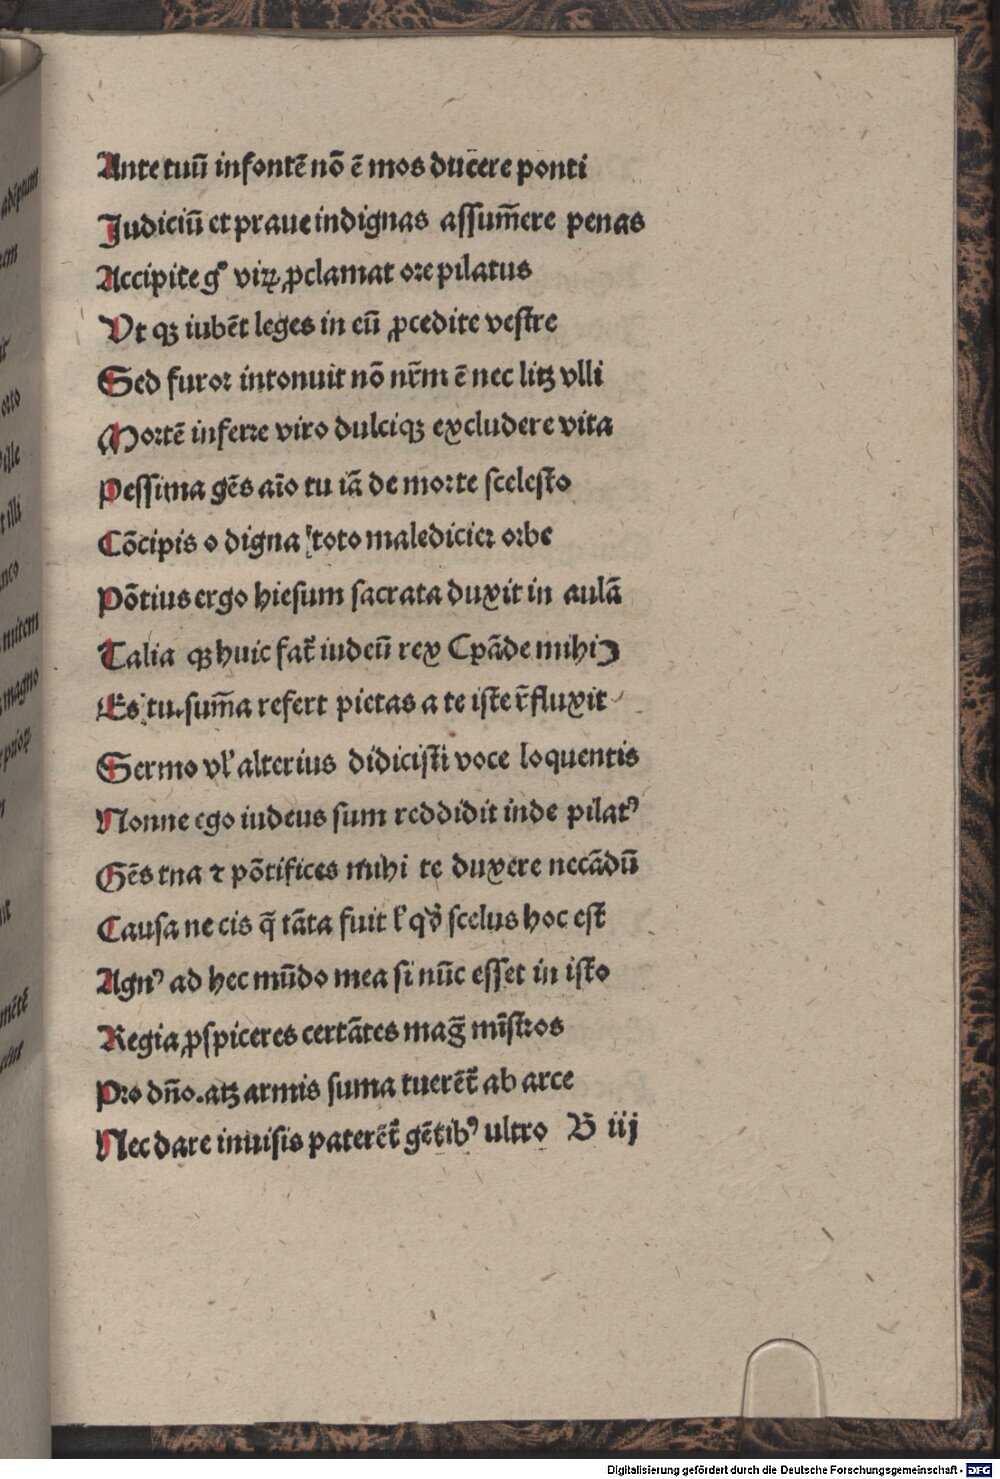 Ante tuū insontē nō ē mos ducere ponti
Judiciū et praue indignas assum̄ere penas
Accipite gͦ viꝝ ꝓclamat ore pilatus
Vt qꝫ iubēt leges in eū ꝓcedite vestre
Sed furor intonuit nō nr̄m ē nec litꝫ vlli
Mortē inferre viro dulciqꝫ excludere vita
Pessima gēs aīo tu iā de morte scelesto
Cōcipis o digna toto maledicier orbe
Pōtius ergo hiesum sacrata duxit in aulā
Talia qꝫ huic fat̄ iudeū rex Cpāde mihi
Es tu.sum̄a refert pietas a te iste r̄fluxit
Sermo vl̓ alterius didicisti voce loquentis
Nonne ego iudeus sum reddidit inde pilatꝰ
Gēs tna ⁊ pōtifices mihi te duxere necādū
Causa necis q̄ tāta fuit l̓ qͦd scelus hoc est̄
Agnꝰ ad hec mūdo mea si nūc esset in isto
Regia ꝑspiceres certātes mag̅ mīstros
Pro dn̄o.atꝫ armis suma tuerēt̄ ab arce
Nec dare inuisis paterēt̄ gētibꝰ ultro B iij
adipum
otto
ville
t illi
nco
mitem
magno
Digitalisierung gefördert durch die Deutsche Forschungsgemeinschaft - DFG